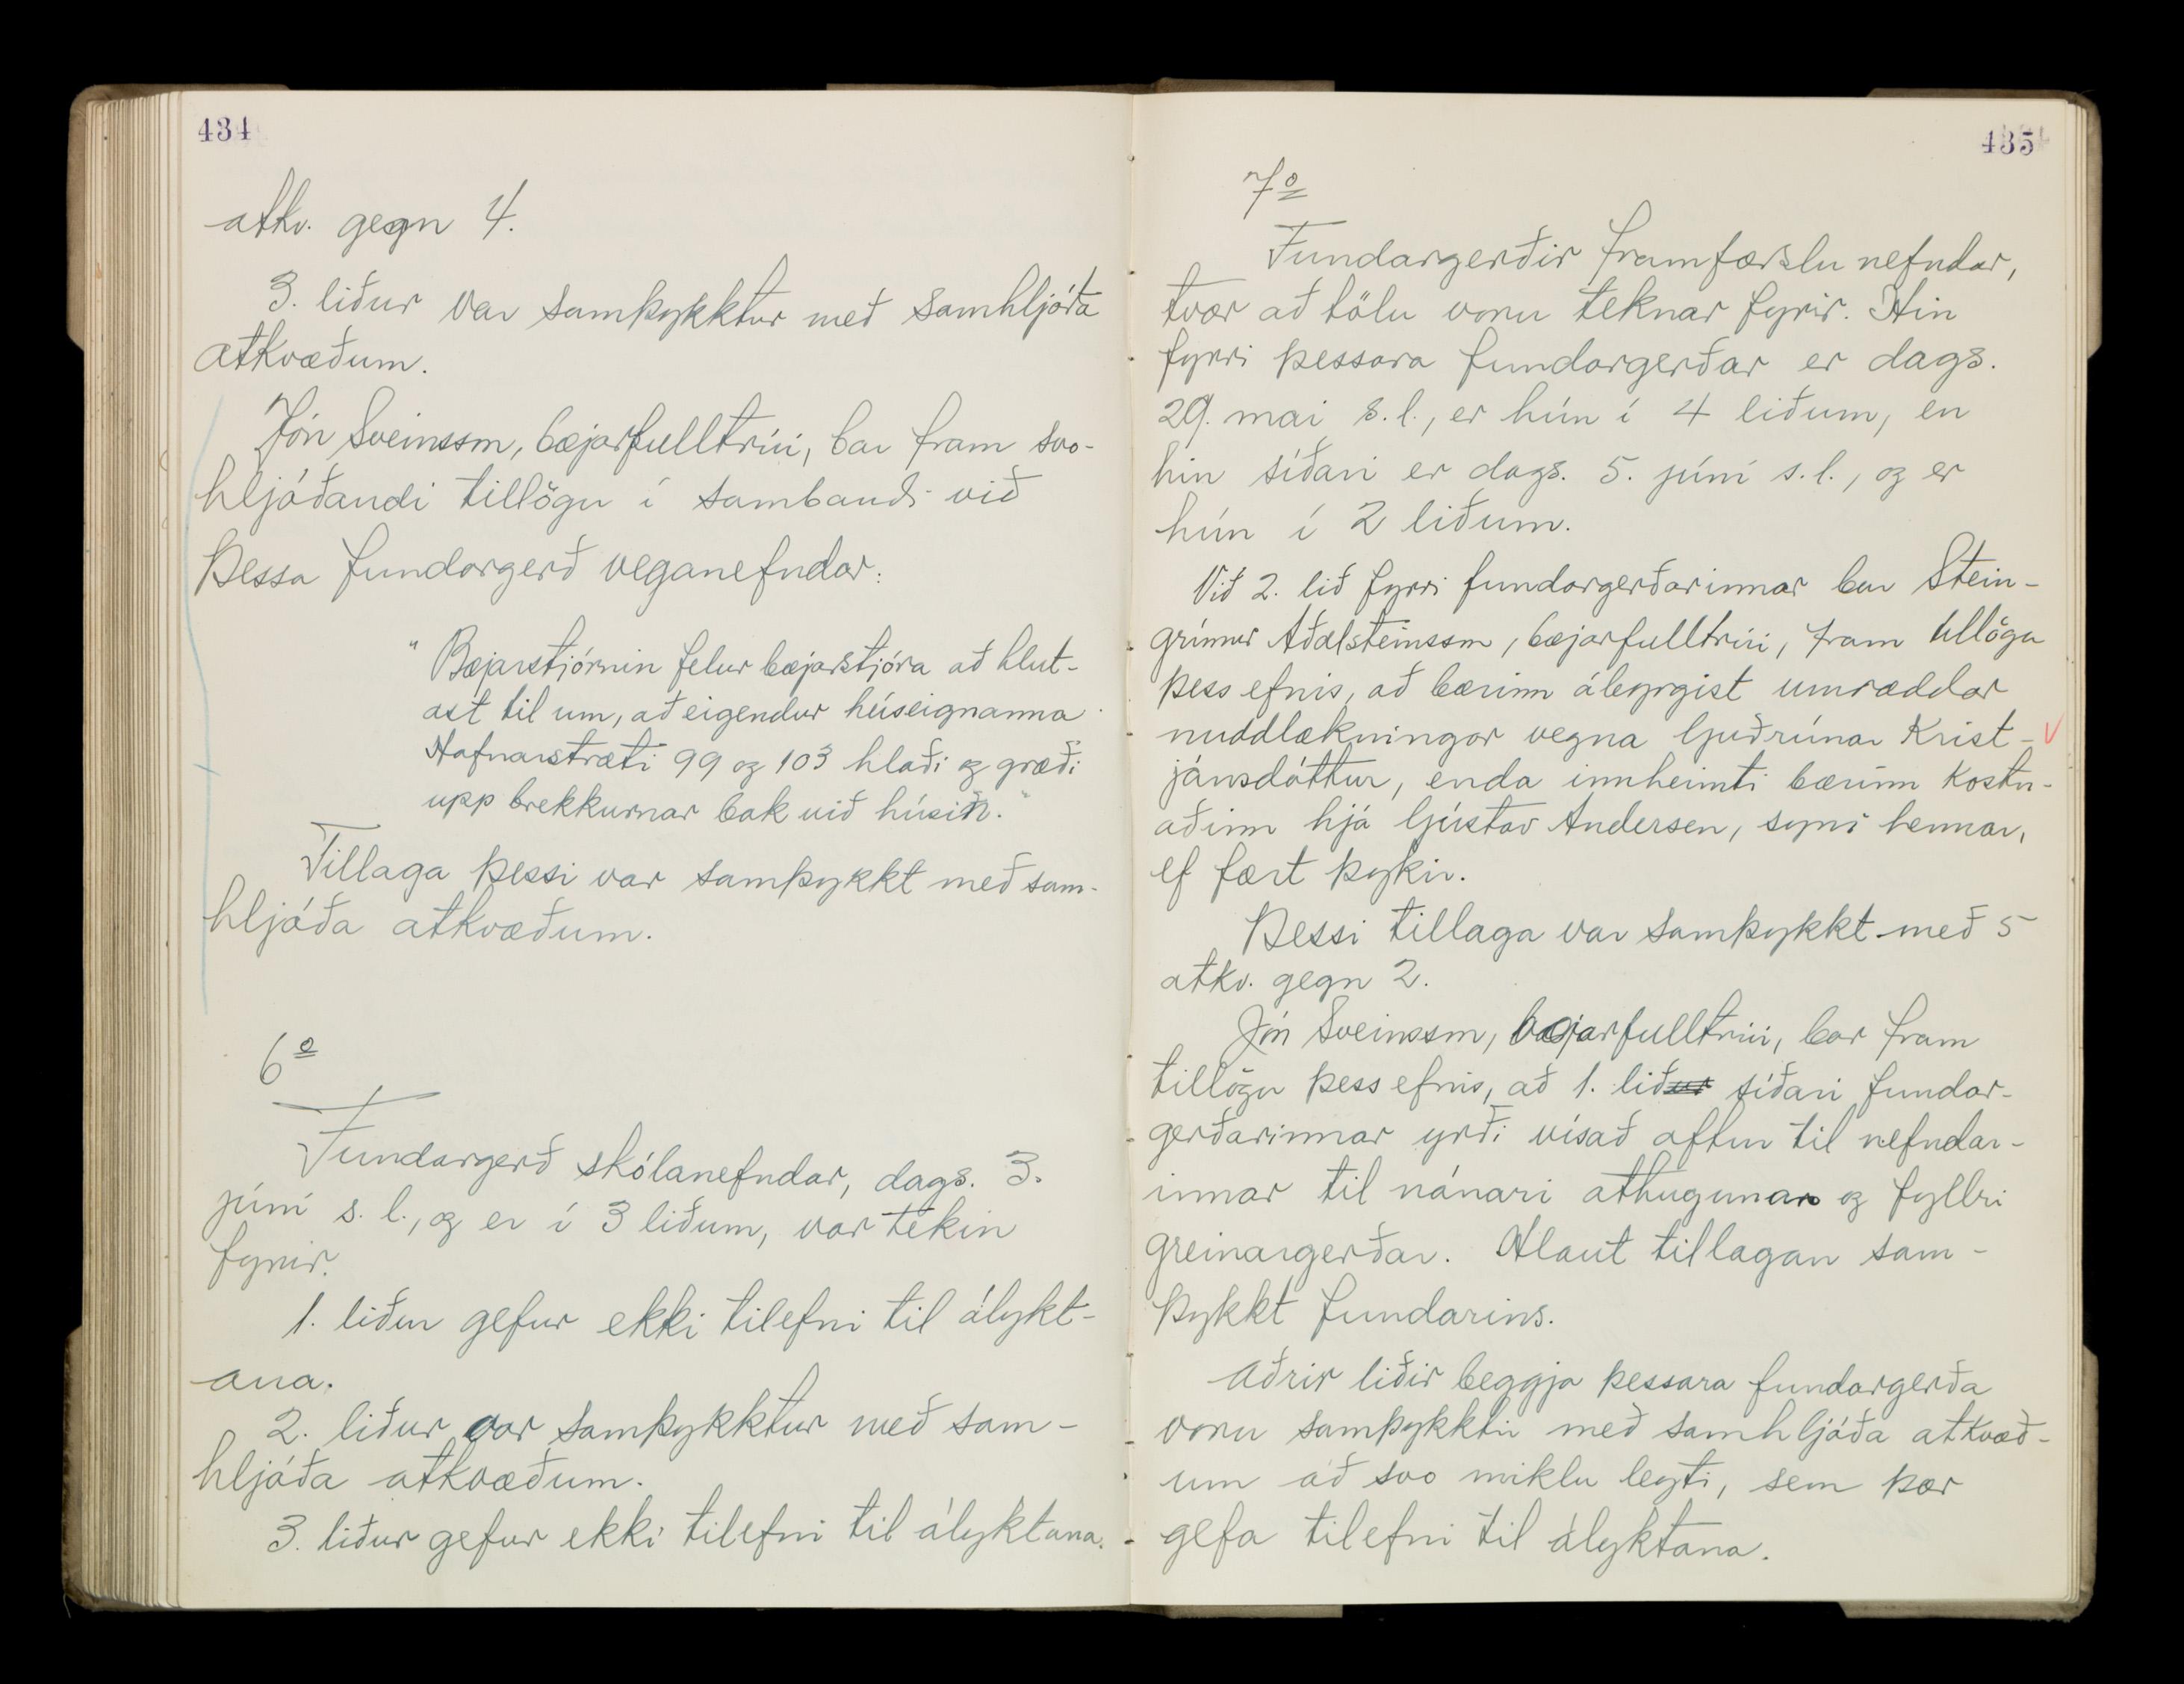 434
atkv. gegn 4.
3. liður var samþykktur með samhljóða
atkvæðum.
Jón Sveinsson, bæjarfulltrúi, bar fram svo-
hljóðandi tillögu í sambandi við
þessa fundargerð veganefndar:
"Bæjarstjórnin felur bæjarstjóra að hlut-
ast til um, að eigendur húseignanna
Hafnarstræti 99 og 103 hlaði og græði
upp brekkurnar bak við húsin."
Tillaga þessi var samþykkt með sam-
hljóða atkvæðum.
6º
Fundargerð skólanefndar, dags. 3.
júní s.l., og er í 3 liðum, var tekin
fyrir.
1. liður gefur ekki tilefni til álykt-
ana.
2. liður var samþykktur með sam-
hljóða atkvæðum.
3. liður gefur ekki tilefni til ályktana.
435
7º
Fundargerðir framfærslunefndar,
tvær að tölu voru teknar fyrir. Hin
fyrri þessara fundargerðar er dags.
29. maí s.l., er hún í 4 liðum, en
hin síðari er dags. 5. júní s.l., og er
hún í 2 liðum.
Við 2. lið fyrri fundargerðarinnar bar Stein-
grímur Aðalsteinsson, bæjarfulltrúi, fram tillögu
þess efnis, að bærinn ábyrgist umræddar
nuddlækningar vegna Guðrúnar Krist-
jánsdóttur, enda innheimti bærinn kostn-
aðinn hjá Gústav Andersen, syni hennar,
ef fært þykir.
Þessi tillaga var samþykkt með 5
atkv. gegn 2.
Jón Sveinsson, bæjarfulltrúi, bar fram
tillögu þess efnis, að 1. liður síðari fundar-
gerðarinnar yrði vísað aftur til nefndar-
innar til nánari athugunar og fyllri
greinargerðar. Hlaut tillagan sam-
þykkt fundarins.
Aðrir liðir beggja þessara fundargerða
voru samþykktir með samhljóða atkvæð-
um að svo miklu leyti, sem þær
gefa tilefni til ályktana.